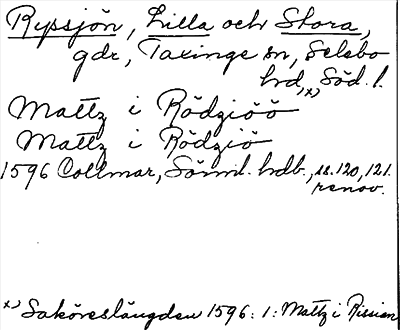 Ryssjön, Lilla och Stora,
gdr, Taxinge sn, Selebo
hd,x) Söd. l.
Mattz i Rödziöö
Mattz i Rödziö
1596 Collmar, Sörml. hdb., ss. 120, 121.
renov.
x) Saköreslängden 1596: 1: Mattz i Rissiön